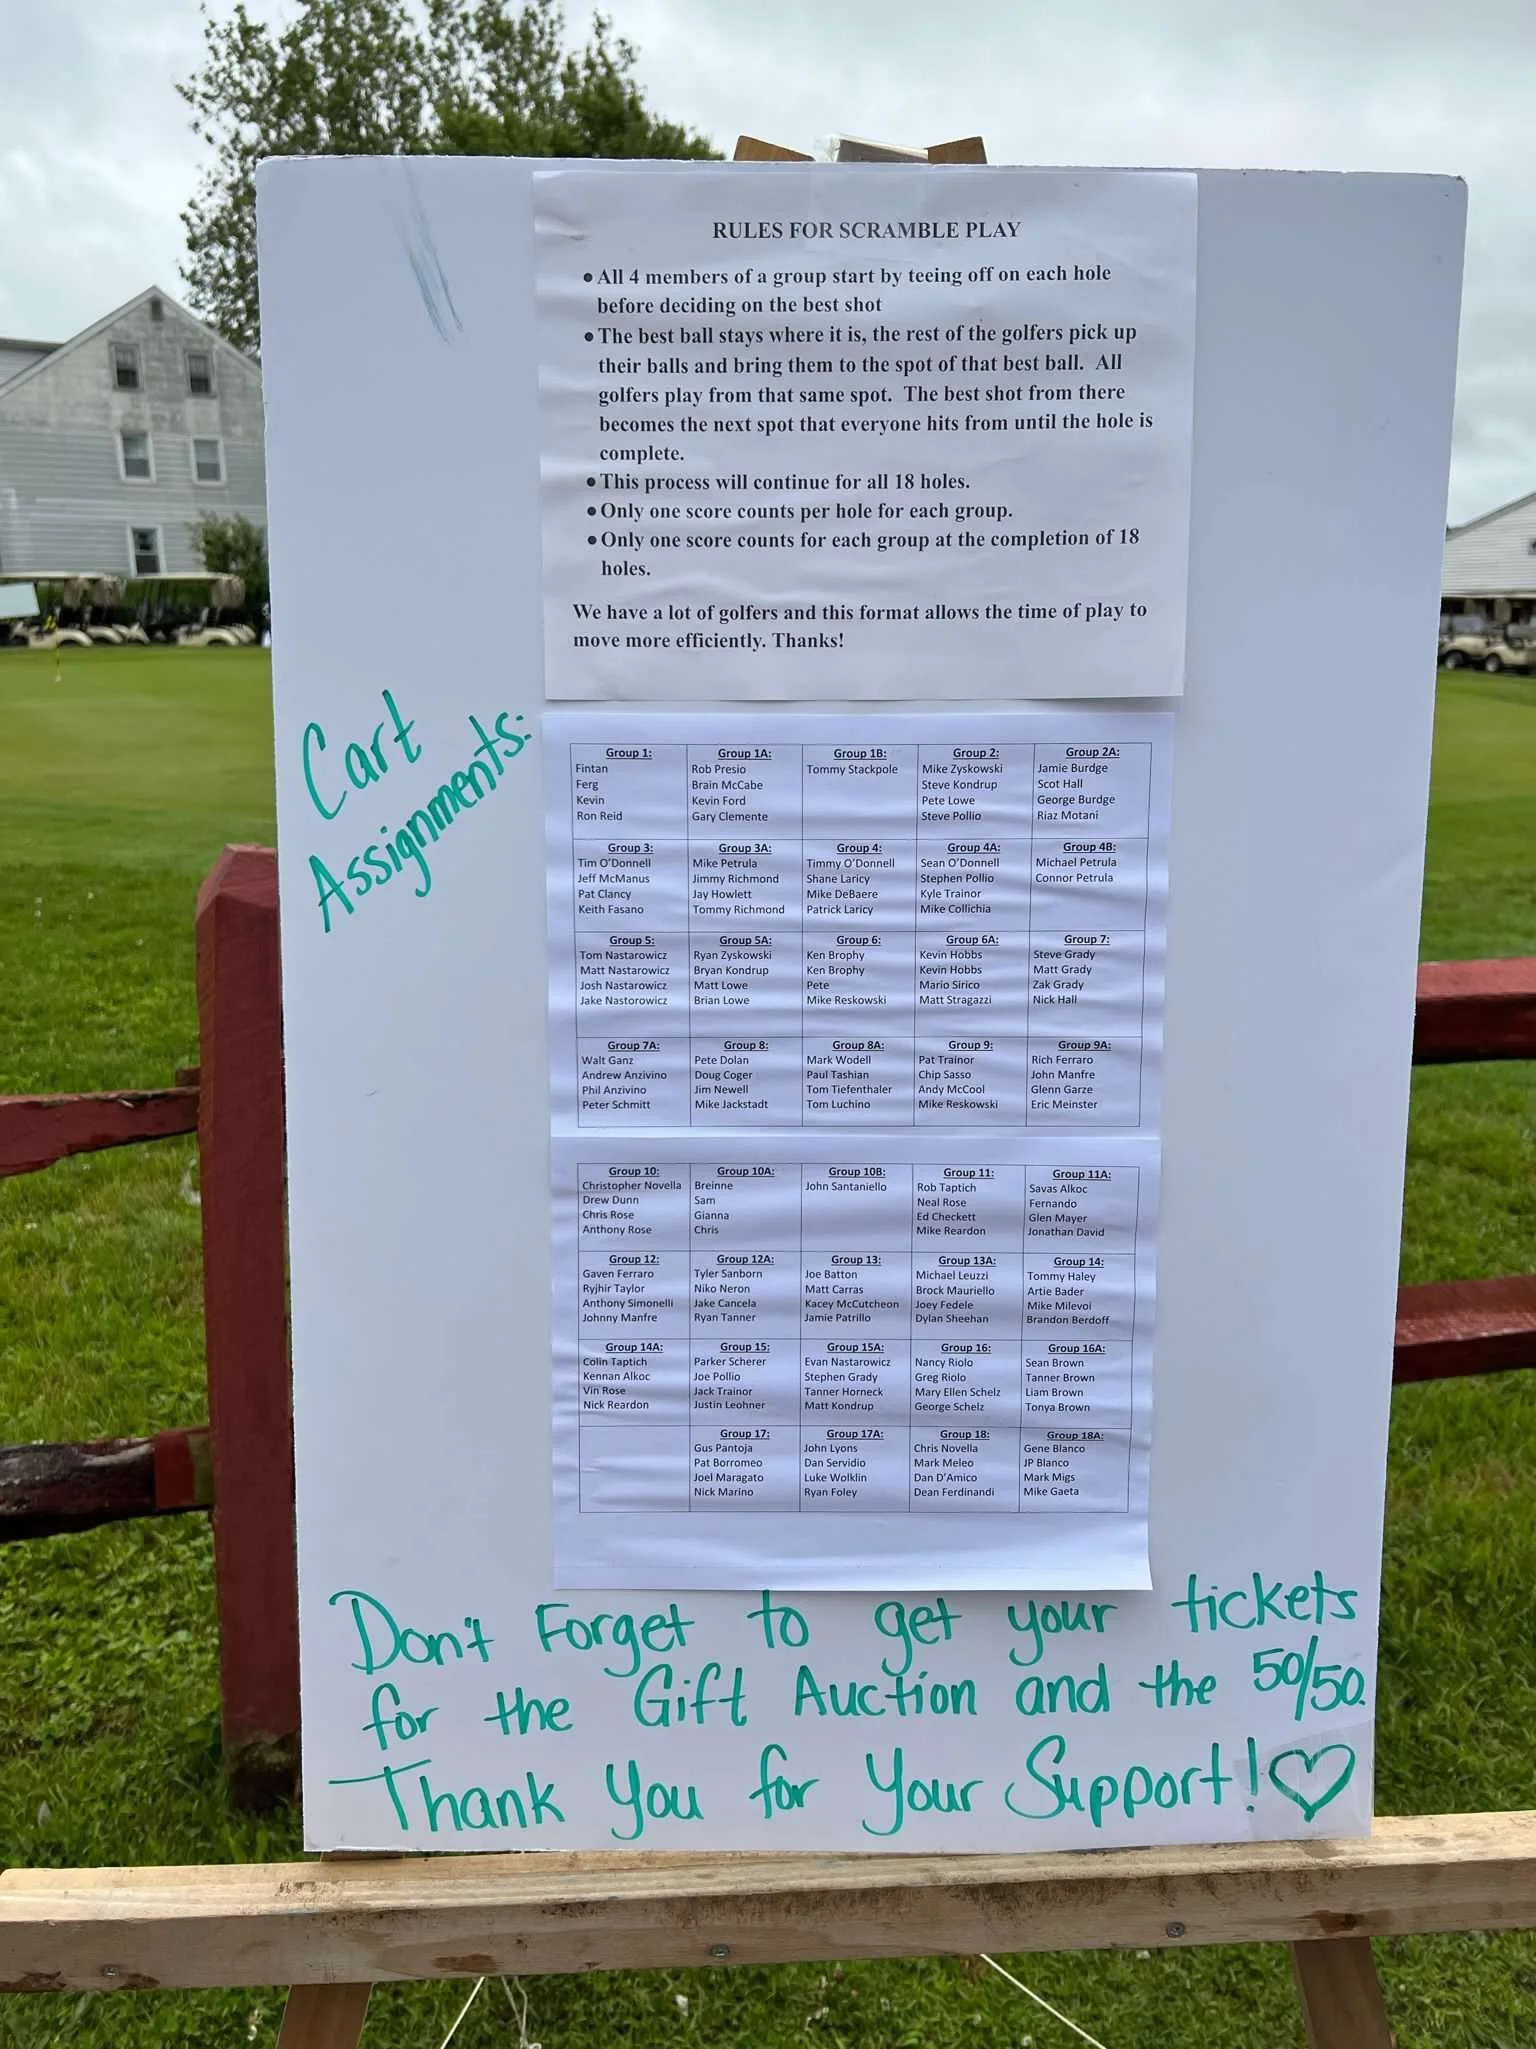 RULES FOR SCRAMBLE PLAY
• All 4 members of a group start by teeing off on each hole
before deciding on the best shot
• The best ball stays where it is, the rest of the golfers pick up
their balls and bring them to the spot of that best ball. All
golfers play from that same spot. The best shot from there
becomes the next spot that everyone hits from until the hole is
complete.
• This process will continue for all 18 holes.
• Only one score counts per hole for each group.
• Only one score counts for each group at the completion of 18
holes.
We have a lot of golfers and this format allows the time of play to
move more efficiently. Thanks!
Cart
Assignments:
Group 1:
Fintan
Ferg
Kevin
Ron Reid
Group 1A:
Rob Presio
Brain McCabe
Kevin Ford
Gary Clemente
Group 1B:
Tommy Stackpole
Group 2:
Mike Zyskowski
Steve Kondrup
Pete Lowe
Steve Pollio
Group 2A:
Jamie Burdge
Scot Hall
George Burdge
Riaz Motani
Group 3:
Tim O'Donnell
Jeff McManus
Pat Clancy
Keith Fasano
Group 3A:
Mike Petrula
Jimmy Richmond
Jay Howlett
Tommy Richmond
Group 4:
Timmy O'Donnell
Shane Laricy
Mike DeBaere
Patrick Laricy
Group 4A:
Sean O'Donnell
Stephen Pollio
Kyle Trainor
Mike Collichia
Group 4B:
Michael Petrula
Connor Petrula
Group 5:
Tom Nastarowicz
Matt Nastarowicz
Josh Nastarowicz
Jake Nastorowicz
Group 5A:
Ryan Zyskowski
Bryan Kondrup
Matt Lowe
Brian Lowe
Group 6:
Ken Brophy
Ken Brophy
Pete
Mike Reskowski
Group 6A:
Kevin Hobbs
Kevin Hobbs
Mario Sirico
Matt Stragazzi
Group 7:
Steve Grady
Matt Grady
Zak Grady
Nick Hall
Group 7A:
Walt Ganz
Andrew Anzivino
Phil Anzivino
Peter Schmitt
Group 8:
Pete Dolan
Doug Coger
Jim Newell
Mike Jackstadt
Group 8A:
Mark Wodell
Paul Tashian
Tom Tiefenthaler
Tom Luchino
Group 9:
Pat Trainor
Chip Sasso
Andy McCool
Mike Reskowski
Group 9A:
Rich Ferraro
John Manfre
Glenn Garze
Eric Meinster
Group 10:
Christopher Novella
Drew Dunn
Chris Rose
Anthony Rose
Group 10A:
Breinne
Sam
Gianna
Chris
Group 10B:
John Santaniello
Group 11:
Rob Taptich
Neal Rose
Ed Checkett
Mike Reardon
Group 11A:
Savas Alkoc
Fernando
Glen Mayer
Jonathan David
Group 12:
Gaven Ferraro
Ryjhir Taylor
Anthony Simonelli
Johnny Manfre
Group 12A:
Tyler Sanborn
Niko Neron
Jake Cancela
Ryan Tanner
Group 13:
Joe Batton
Matt Carras
Kacey McCutcheon
Jamie Patrillo
Group 13A:
Michael Leuzzi
Brock Mauriello
Joey Fedele
Dylan Sheehan
Group 14:
Tommy Haley
Artie Bader
Mike Milevoi
Brandon Berdoff
Group 14A:
Colin Taptich
Kennan Alkoc
Vin Rose
Nick Reardon
Group 15:
Parker Scherer
Joe Pollio
Jack Trainor
Justin Leohner
Group 15A:
Evan Nastarowicz
Stephen Grady
Tanner Horneck
Matt Kondrup
Group 16:
Nancy Riolo
Greg Riolo
Mary Ellen Schelz
George Schelz
Group 16A:
Sean Brown
Tanner Brown
Liam Brown
Tonya Brown
Group 17:
Gus Pantoja
Pat Borromeo
Joel Maragato
Nick Marino
Group 17A:
John Lyons
Dan Servidio
Luke Wolklin
Ryan Foley
Group 18:
Chris Novella
Mark Meleo
Dan D'Amico
Dean Ferdinandi
Group 18A:
Gene Blanco
JP Blanco
Mark Migs
Mike Gaeta
Don't Forget to get your tickets
for the Gift Auction and the 50/50.
Thank You for Your Support! ♡